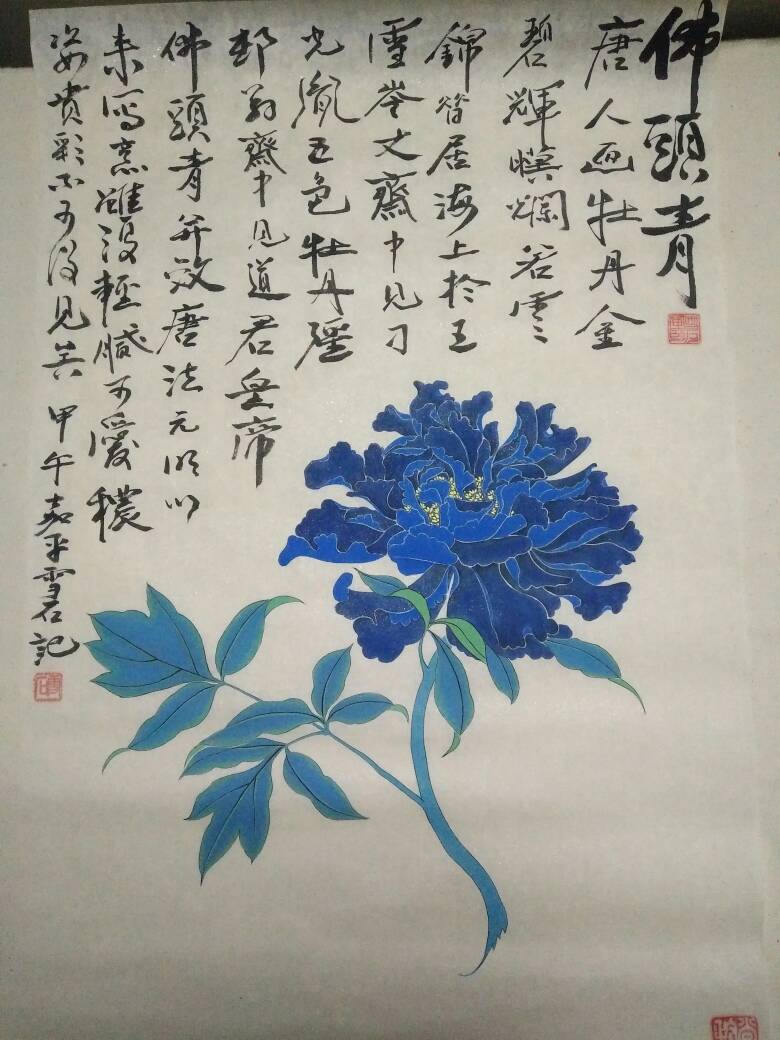 佛頭青
唐人画牡丹金
碧輝暎爛若雲
錦昔居海上於王
雪岑丈齋中見刁
光胤五色牡丹
邨翁齋中見道君皇帝
佛頭青并效唐法元明以
来写意雖没輕膩可愛穠
姿貴彩不可復見矣 甲午嘉平雪石記